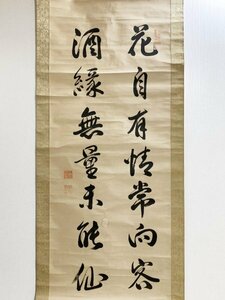 花自有情常向客
酒緣無量未能仙